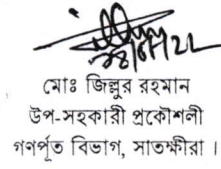 মোঃ জিল্লুর রহমান
উপ-সহকারী প্রকৌশলী
গণপূর্ত বিভাগ, সাতক্ষীরা ।